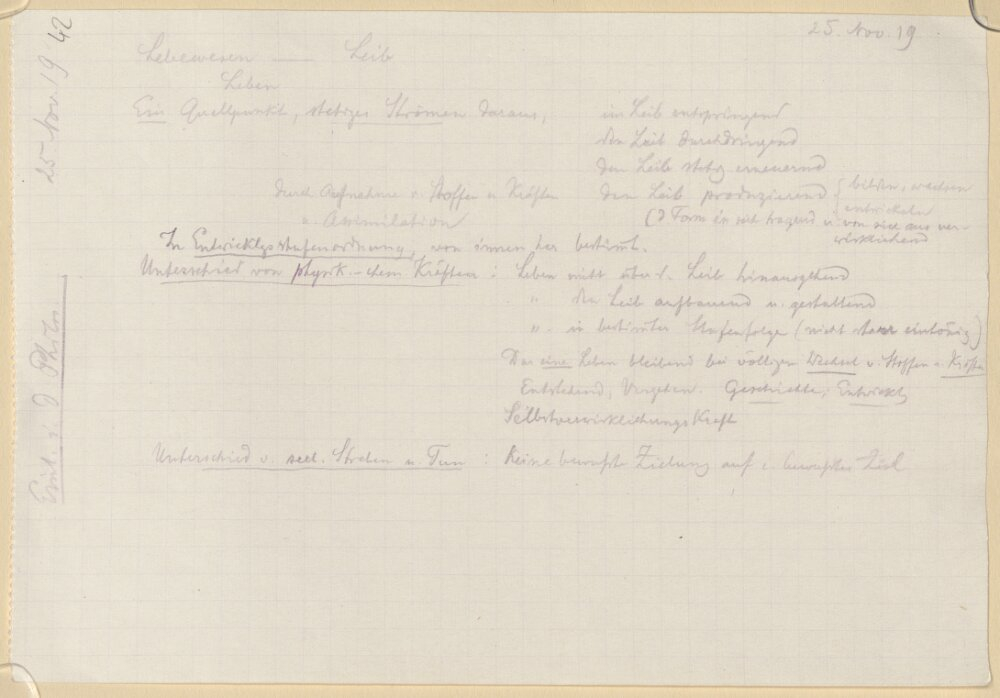 25. Nov. 19.
25. Nov 19 42
Einl. i. d. Philos.
Lebewesen — Leib
Leben
Ein Quellpunkt, stetiges Strömen daraus, im Leib entspringend
den Leib durchdringend
den Leib stetig erneuernd
durch Aufnahme v. Stoffen u Kräften den Leib produzierend { bilden, wachsen
u. Assimilation entwickeln
(d Form in sich tragend u von sich aus ver-
wirklichend
In Entwicklgsstufenordnung, von innen her bestimt.
Unterschied von physik.-chem Kräften : Leben nicht über d. Leib hinausgehend
" den Leib aufbauend u. gestaltend
" in bestimter Stufenfolge (nicht starr eintönig)
Das eine Leben bleibend bei völligem Wechsel v. Stoffen u. Kräften
Entstehend, Vergehen. Geschichte, Entwickl.
Selbstverwirklichungs Kraft
Unterschied v. seel. Streben u. Tun : Keine bewußte Zielung auf e. bewußtes Ziel